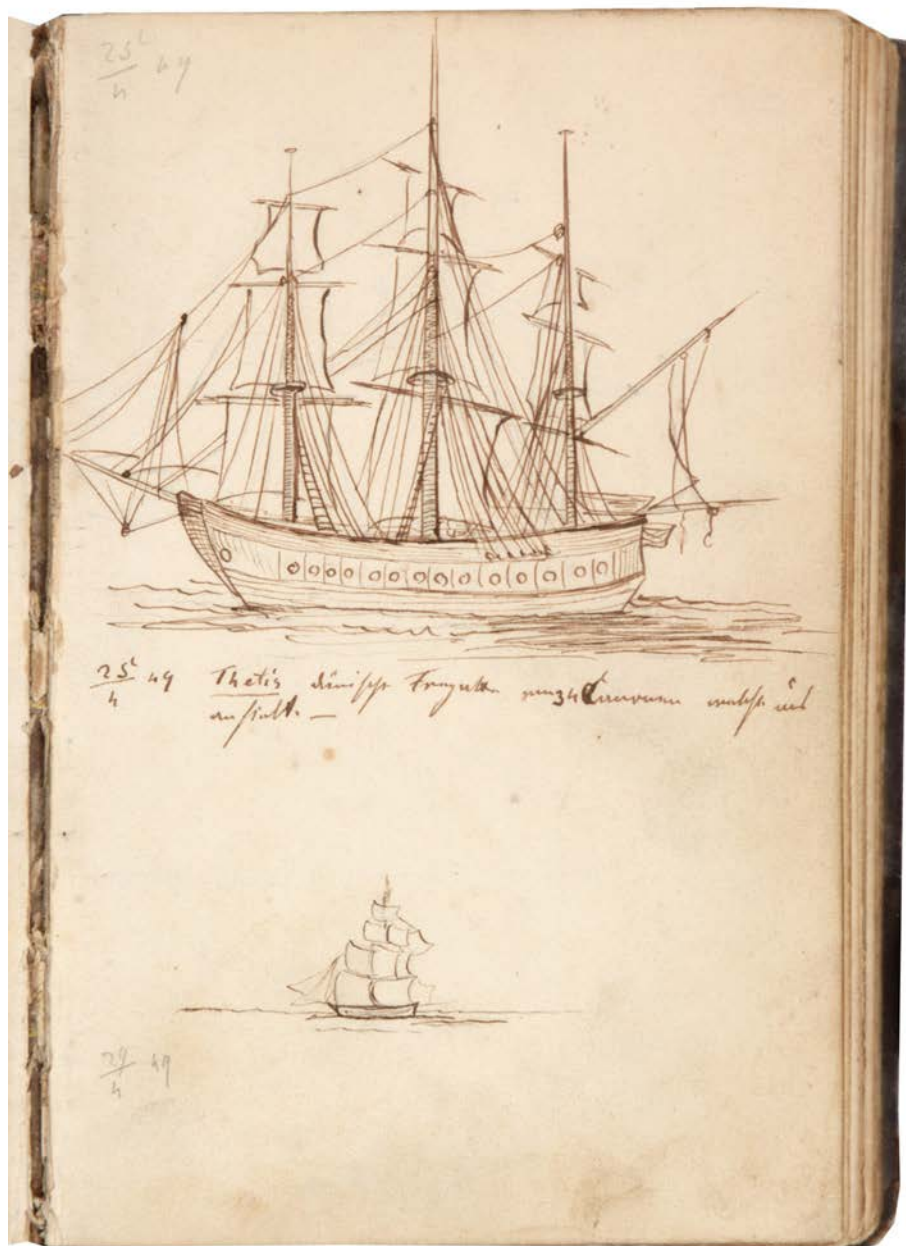 25t/4 49
25t/4 49 Thetis dänische Fregatte von 34 Canonen welche uns
anhielt. —
29/4 49